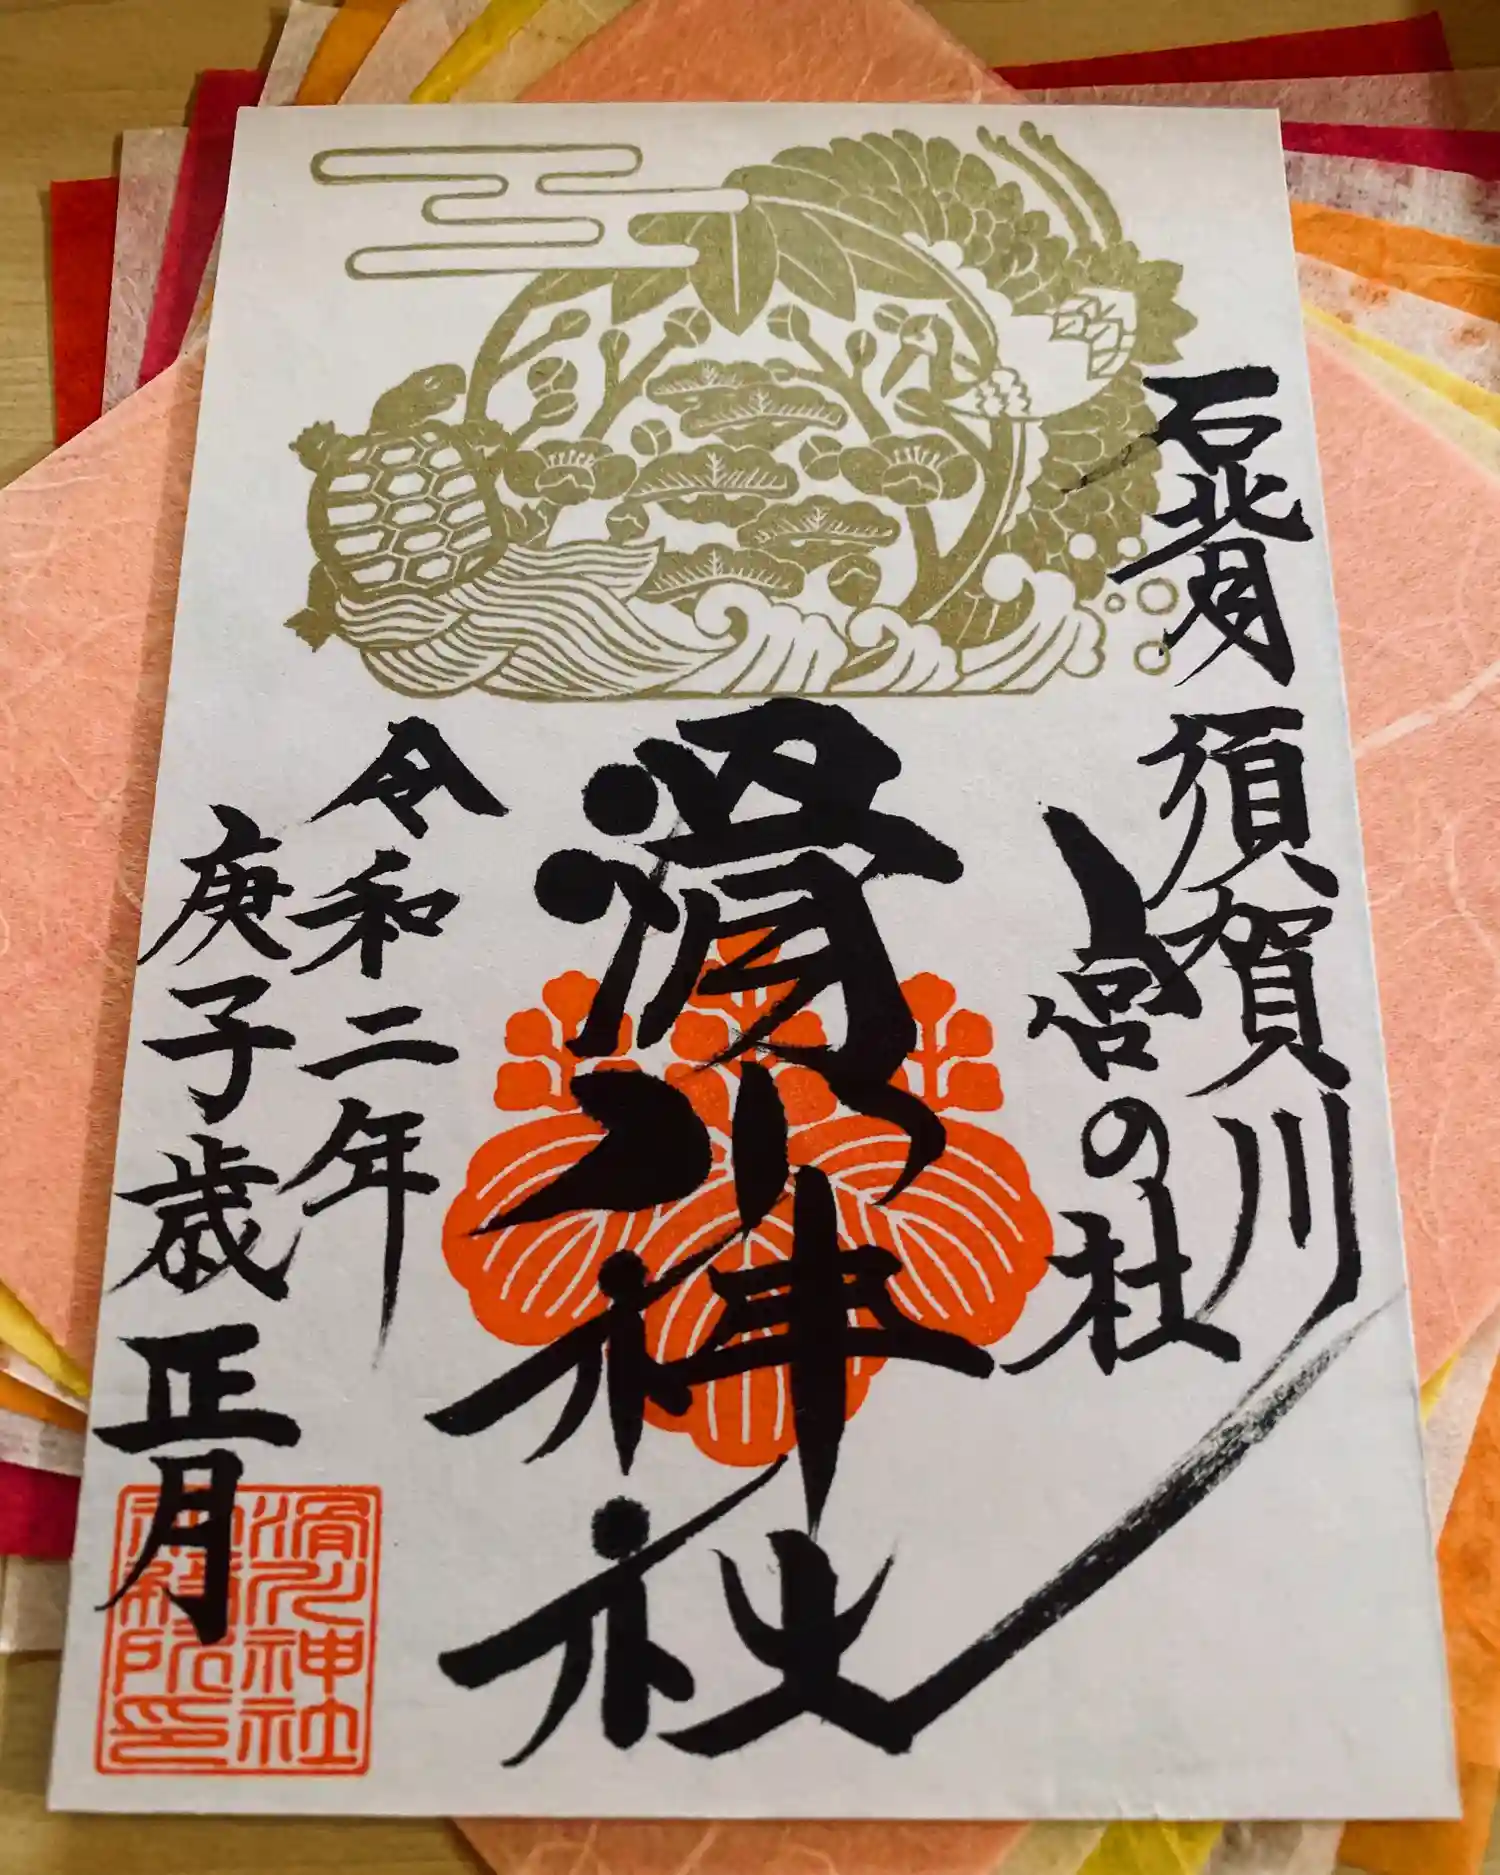 石背
須賀川
宮の杜
滑川神社
令和二年
庚子歳 正月
滑川神社
社務所印